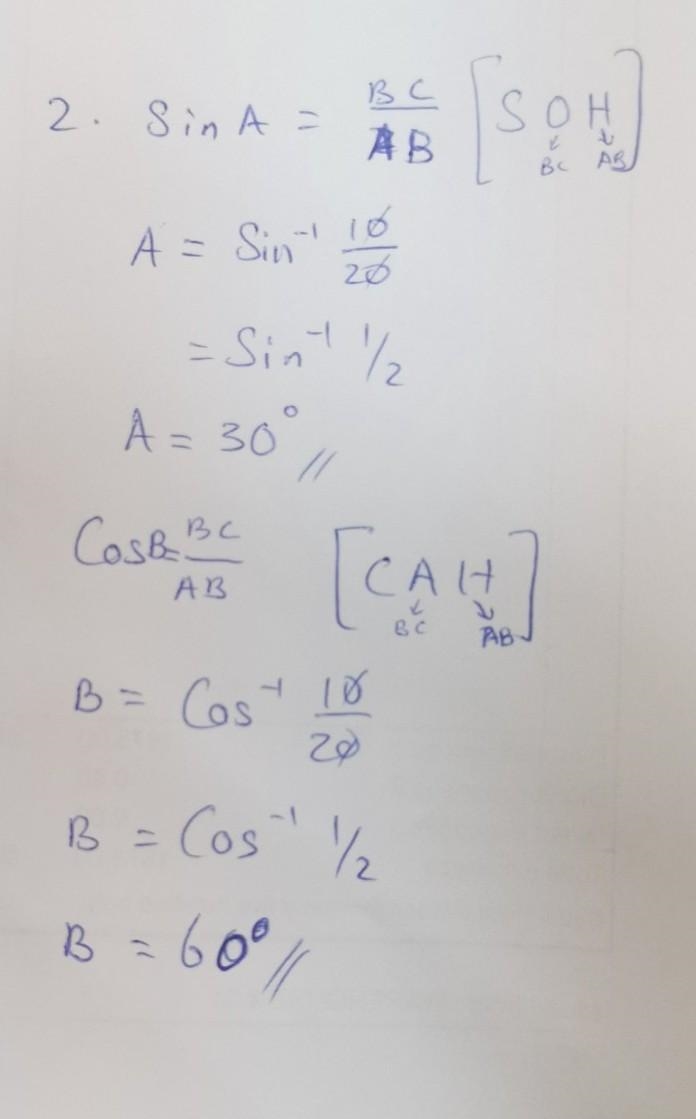 2. Sin A = BC/AB [SOH]
BC AB
A = Sin⁻¹ 10/20
= Sin⁻¹ 1/2
A = 30°//
CosB = BC/AB [CAH]
BC AB
B = Cos⁻¹ 10/20
B = Cos⁻¹ 1/2
B = 60°//